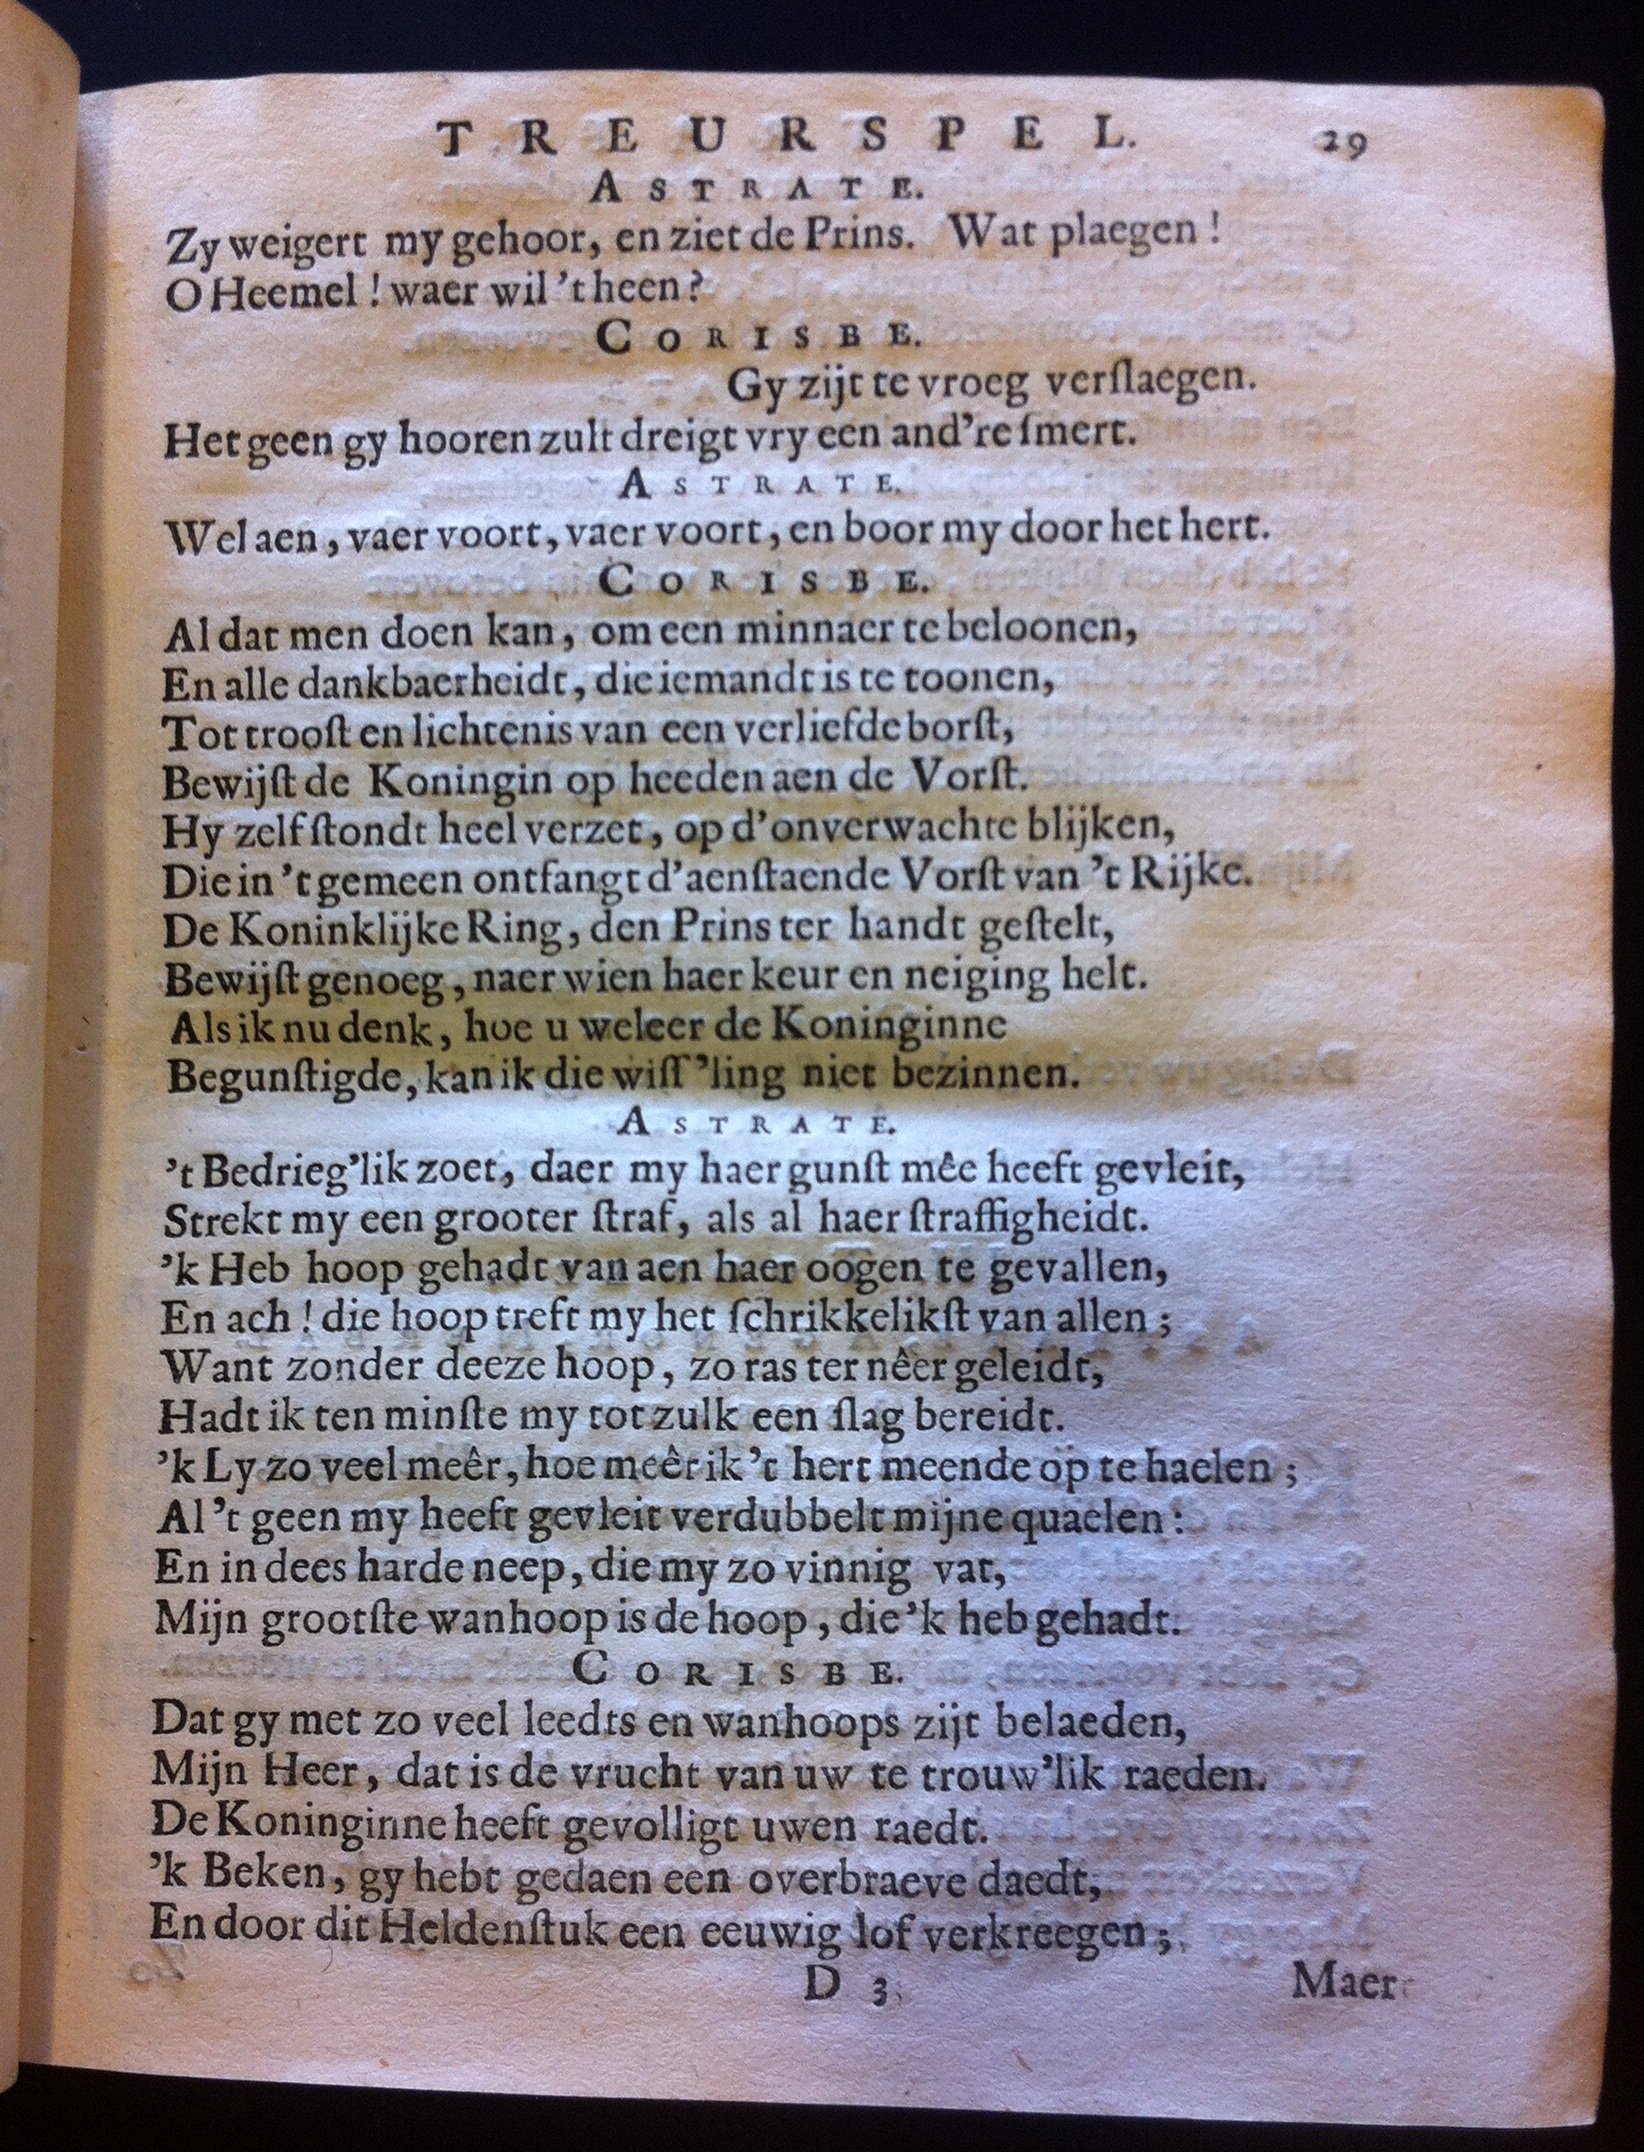 TREURSPEL. 29
ASTRATE.
Zy weigert my gehoor, en ziet de Prins. Wat plaegen!
O Heemel! waer wil 't heen?
CORISBE.
Gy zijt te vroeg verſlaegen.
Het geen gy hooren zult dreigt vry een and're ſmert.
ASTRATE.
Wel aen, vaer voort, vaer voort, en boor my door het hert.
CORISBE.
Al dat men doen kan, om een minnaer te beloonen,
En alle dankbaerheidt, die iemandt is te toonen,
Tot trooſt en lichtenis van een verliefde borſt,
Bewijſt de Koningin op heeden aen de Vorſt.
Hy zelf ſtondt heel verzet, op d'onverwachte blijken,
Die in 't gemeen ontfangt d'aenſtaende Vorſt van 't Rijke.
De Koninklijke Ring, den Prins ter handt geſtelt,
Bewijſt genoeg, naer wien haer keur en neiging helt.
Als ik nu denk, hoe u weleer de Koninginne
Begunſtigde, kan ik die wiſſ'ling niet bezinnen.
ASTRATE.
't Bedrieg'lik zoet, daer my haer gunſt mêe heeft gevleit,
Strekt my een grooter ſtraf, als al haer ſtraffigheidt.
'k Heb hoop gehadt van aen haer oogen te gevallen,
En ach! die hoop treft my het ſchrikkelikſt van allen;
Want zonder deeze hoop, zo ras ter nêer geleidt,
Hadt ik ten minſte my tot zulk een ſlag bereidt.
'k Ly zo veel meêr, hoe meêr ik 't hert meende op te haelen;
Al 't geen my heeft gevleit verdubbelt mijne quaelen:
En in dees harde neep, die my zo vinnig vat,
Mijn grootſte wanhoop is de hoop, die 'k heb gehadt.
CORISBE.
Dat gy met zo veel leedts en wanhoops zijt belaeden,
Mijn Heer, dat is de vrucht van uw te trouw'lik raeden.
De Koninginne heeft gevolligt uwen raedt.
'k Beken, gy hebt gedaen een overbraeve daedt,
En door dit Heldenſtuk een eeuwig lof verkreegen;
D 3 Maer